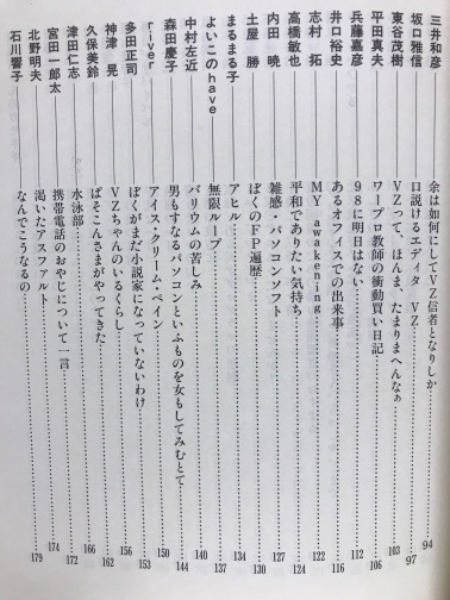 三井和彦 余は如何にしてVZ信者となりしか 94
坂口雅信 口説けるエディタ VZ 97
東谷茂樹 VZって、ほんま、たまりまへんなぁ 103
平田真夫 ワープロ教師の衝動買い日記 106
兵藤嘉彦 98に明日はない 112
井口裕史 あるオフィスでの出来事 116
志村 拓 MY awakening 122
高橋敏也 平和でありたい気持ち 124
内田 暁 雑感・パソコンソフト 127
土屋 勝 ぼくのFP遍歴 130
まるまる子 アヒル 134
よいこのhave 無限ループ 137
中村左近 バリウムの苦しみ 140
森田慶子 男もすなるパソコンといふものを女もしてみむとて 144
river アイス・クリーム・ペイン 150
多田正司 ぼくがまだ小説家になっていないわけ 153
神津 晃 VZちゃんのいるくらし 156
久保美鈴 ぱそこんさまがやってきた 162
津田仁志 水泳部 166
宮田一郎太 携帯電話のおやじについて一言 172
北野明夫 渇いたアスファルト 174
石川響子 なんでこうなるの 179